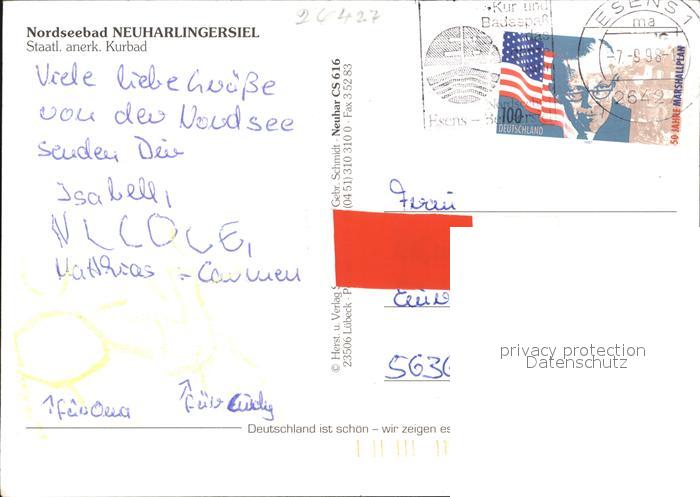 26427
Nordseebad NEUHARLINGERSIEL
Staatl. anerk. Kurbad
Viele liebe Grüße
von der Nordsee
senden Dir
Isabell,
NICOLE,
Matthias - Carmen
↑für Oma
↑für
Deutschland ist schön – wir zeigen es
© Herst. u. Verlag S
Gebr. Schmidt · Neuhar CS 616
23506 Lübeck · P
(04 51) 310 310 0 · Fax 3 52 83
Kur und
Badespaß
das
Nordsee
Esens –
ESENS 1
ma
-7.-9.98-1
2642
100
DEUTSCHLAND
50 JAHRE MARSHALLPLAN
Frau
5636
privacy protection
Datenschutz